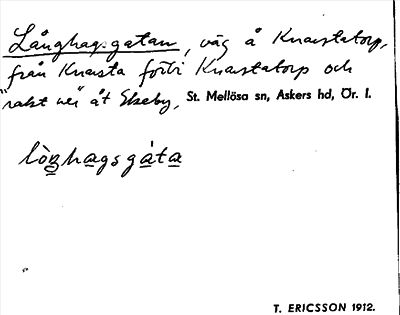 Långhagsgatan, väg å Knavstatorp,
från Knavsta förbi Knavstatorp och
"rakt ner" åt Ekeby, St. Mellösa sn, Askers hd, Ör. l.
lòŋhagsgàta
T. ERICSSON 1912.